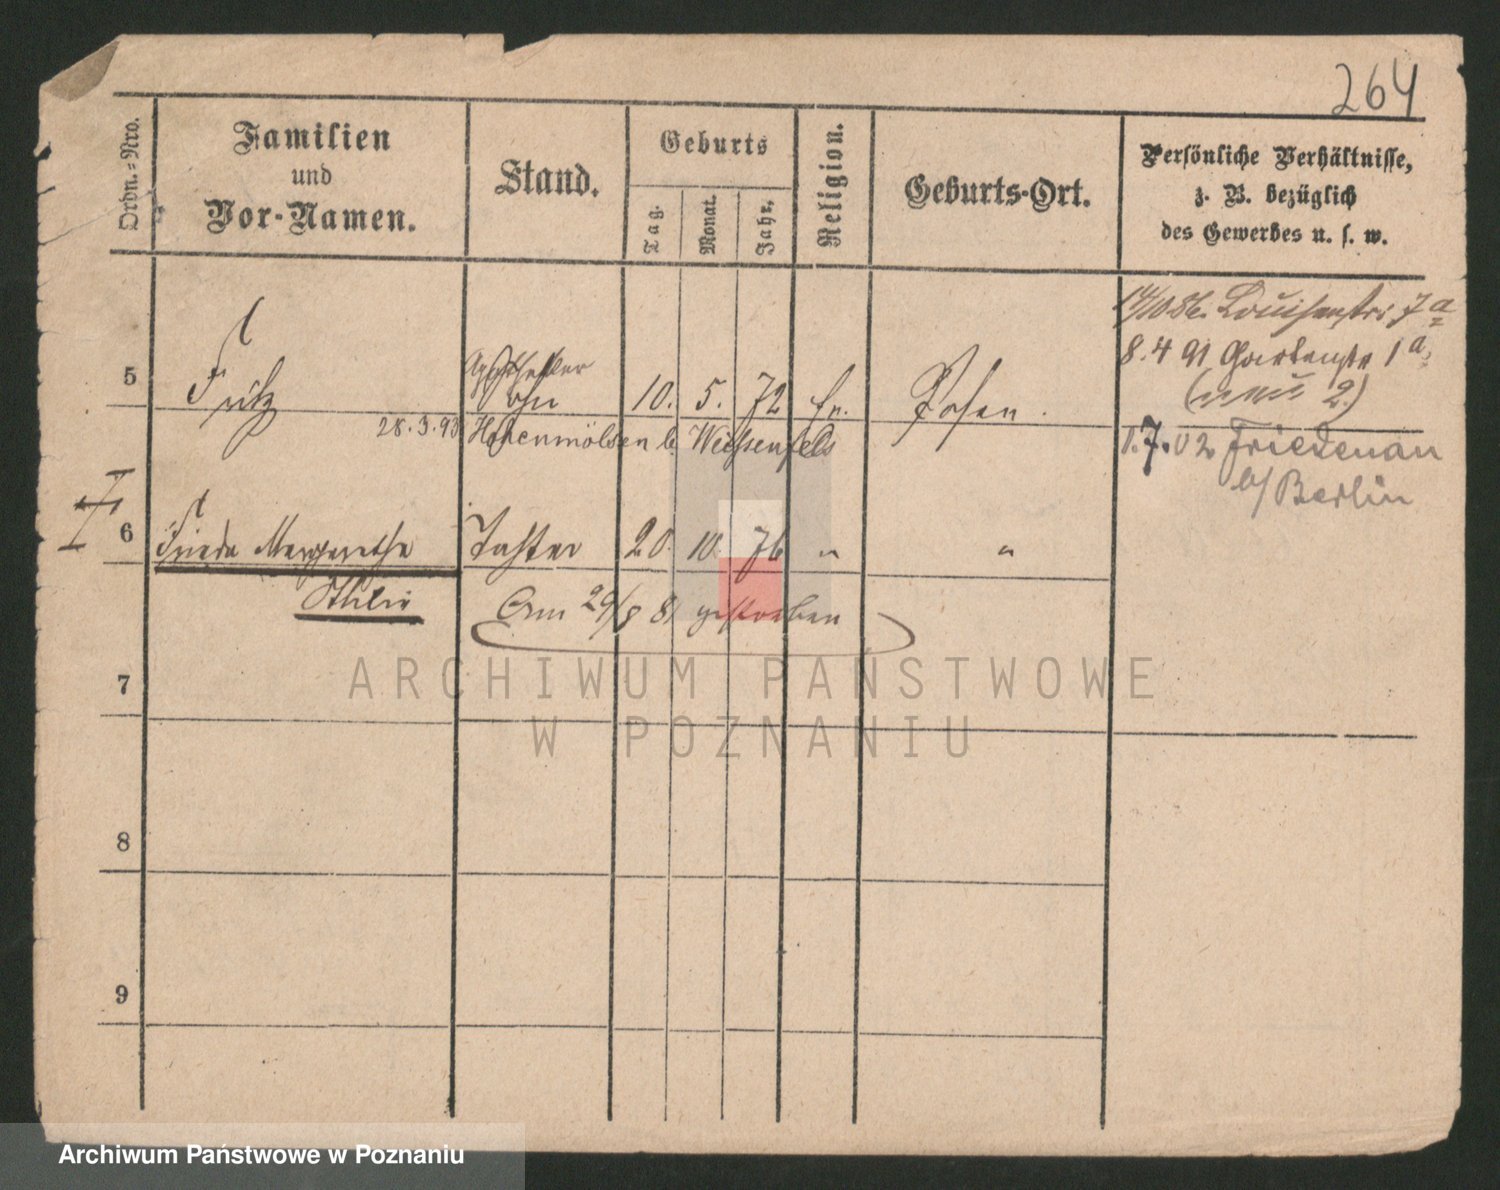 264
Ordn.-Nro.
Familien
und
Vor-Namen.
Stand.
Geburts
Tag.
Monat.
Jahr.
Religion.
Geburts-Ort.
Persönliche Verhältnisse,
z. B. bezüglich
des Gewerbes u. s. w.
14/10 86. Louisenstr 7a
8.4 91 Gartenstr 1a.
(neu 2.)
5
Fritz
Apotheker
Sohn
10. 5. 72
Posen.
28.3.93 Hohenmölsen b. Weissenfels
1.7.02 Friedenau
b/ Berlin
6
Frieda Margarethe
Tochter 20. 10. 76 " "
Am 29/8 81 gestorben
7
8
9
ARCHIWUM PAŃSTWOWE
W POZNANIU
Archiwum Państwowe w Poznaniu